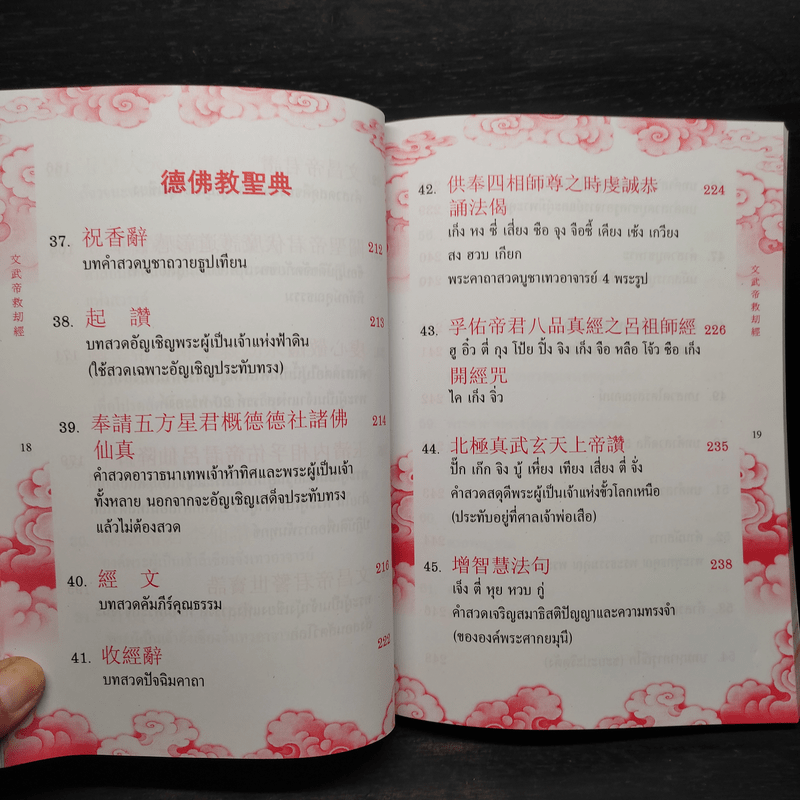 德佛教聖典
37. 祝香辭 212
บทคำสวดบูชาถวายธูปเทียน
38. 起 讚 213
บทสวดอัญเชิญพระผู้เป็นเจ้าแห่งฟ้าดิน
(ใช้สวดเฉพาะอัญเชิญประทับทรง)
39. 奉請五方星君概德德社諸佛 214
仙真
คำสวดอาราธนาเทพเจ้าห้าทิศและพระผู้เป็นเจ้า
ทั้งหลาย นอกจากจะอัญเชิญเสด็จประทับทรง
แล้วไม่ต้องสวด
40. 經 文 216
บทสวดคัมภีร์คุณธรรม
41. 收經辭 222
บทสวดปัจฉิมคาถา
文武帝救劫經
18
42. 供奉四相師尊之時虔誠恭 224
誦法偈
เก็ง หง ซี่ เสี่ยง ซือ จุง จือซี้ เคียง เซ้ง เกวียง
สง ฮวบ เกียก
พระคาถาสวดบูชาเทวอาจารย์ 4 พระรูป
43. 孚佑帝君八品真經之呂祖師經 226
ฮู อิ๋ว ตี่ กุง โป้ย ปิ้ง จิง เก็ง จือ หลือ โจ้ว ซือ เก็ง
開經咒
ไค เก็ง จิ่ว
44. 北極真武玄天上帝讚 235
ปั๊ก เก๊ก จิง บู้ เหี่ยง เทียง เสี่ยง ตี่ จั่ง
คำสวดสดุดีพระผู้เป็นเจ้าแห่งขั้วโลกเหนือ
(ประทับอยู่ที่ศาลเจ้าพ่อเสือ)
45. 增智慧法句 238
เจ็ง ตี่ หุย หวบ กู่
คำสวดเจริญสมาธิสติปัญญาและความทรงจำ
(ขององค์พระศากยมุนี)
文武帝救劫經
19